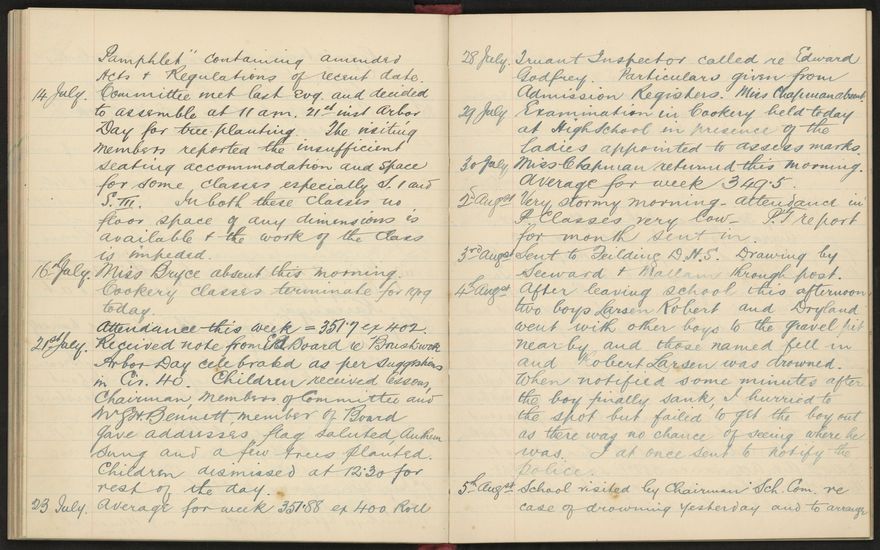 Pamphlet" containing amended
Acts & Regulations of recent date.
14 July. Committee met last evg. and decided
to assemble at 11 am. 21st inst Arbor
Day for tree planting. The visiting
members reported the insufficient
seating accommodation and space
for some classes especially S. I and
S. III. In both these classes no
floor space of any dimensions is
available & the work of the class
is impeded.
16th July. Miss Bryce absent this morning.
Cookery classes terminate for 1909
today.
Attendance this week = 351.7 ex 402.
21st July. Received note from Ed. Board re Brushwork
Arbor Day celebrated as per suggestions
in Cir. 40. Children received lessons,
Chairman, Members of Committee and
Mr E H Bennett, member of Board
gave addresses, flag saluted, Anthem
sung and a few trees planted.
Children dismissed at 12.30 for
rest of the day.
23 July. Average for week 351.88 ex 400 Roll
28 July. Truant Inspector called re Edward
Godfrey. Particulars given from
Admission Registers. Miss Chapman absent.
29 July Examination in Cookery held today
at High School in presence of the
ladies appointed to assess marks.
30 July Miss Chapman returned this morning.
Average for week 349.5.
2nd August Very stormy morning - attendance in
I classes very low - P.T report
for month sent in.
3rd August Sent to Feilding D.H.S. Drawing by
Seeward & through post.
4th August After leaving school this afternoon
two boys Larsen Robert and Dryland
went with other boys to the gravel pit
near by and those named fell in
and Robert Larsen was drowned.
When notified some minutes after
the boy finally sank, I hurried to
the spot but failed to get the boy out
as there was no chance of seeing where he
was. I at once sent to notify the
police.
5th August School visited by Chairman Sch. Com. re
case of drowning yesterday and to arrange